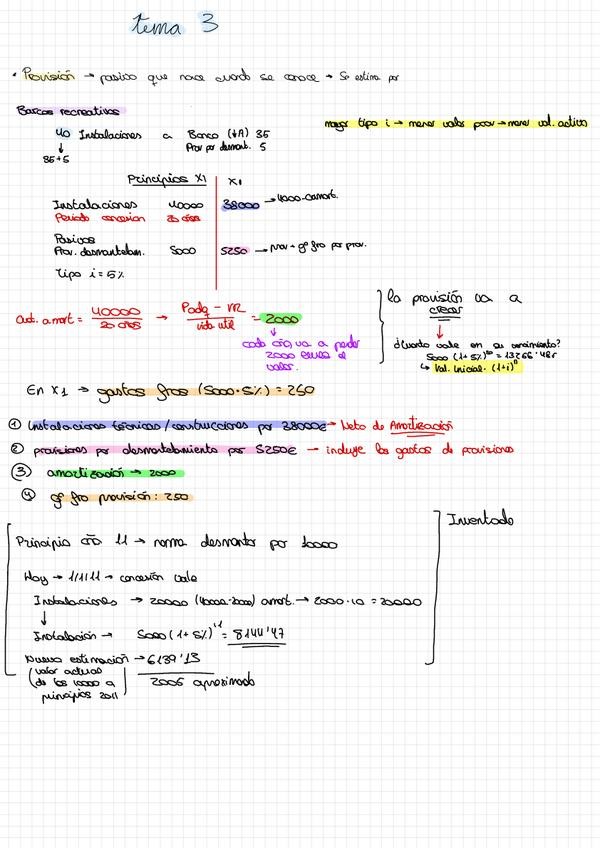 tema 3
• Provisión → pasivo que nace cuando se conoce → Se estima por
Barcos recreativos
40 Instalaciones a Banco (↓A) 35
↓ Prov por desmant. 5
35+5
mayor tipo i → menor valor prov → menor val. activo
Principios X1 X1
Instalaciones 40000 38000 → 4000-camort.
Periodo concesión 20 años
Pasivos
Prov. desmantelam. 5000 5250 → prov + gº fro por prov.
Tipo i = 5%
Cuot. amort = 40000 / 20 años → Padq - VR / vida util = 2000
↓
cada año, va a perder
2000 euros el
valor.
la provisión va a
crecer
↓
¿Cuanto vale en su vencimiento?
5000 (1+5%)²⁰ = 13266'48€
↳ Val. Inicial · (1+i)ⁿ
En X1 → gastos fros (5000·5%) = 250
① Instalaciones técnicas/construcciones por 38000€ → Neto de Amortización
② provisiones por desmantelamiento por 5250€ → incluye los gastos de provisiones
③ amortización → 2000
④ gº fro provisión: 250
Inventado
Principio año 11 → norma desmontar por 10000
Hoy → 1/1/11 → concesión vale
Instalaciones → 20000 (40000-2000) amort. → 2000·10 = 20000
↓
Instalación → 5000 (1+5%)¹⁰ = 8144'47
Nueva estimación → 6139'13
(valor actual
de los 10000 a
principios 2011)
2005 aproximado